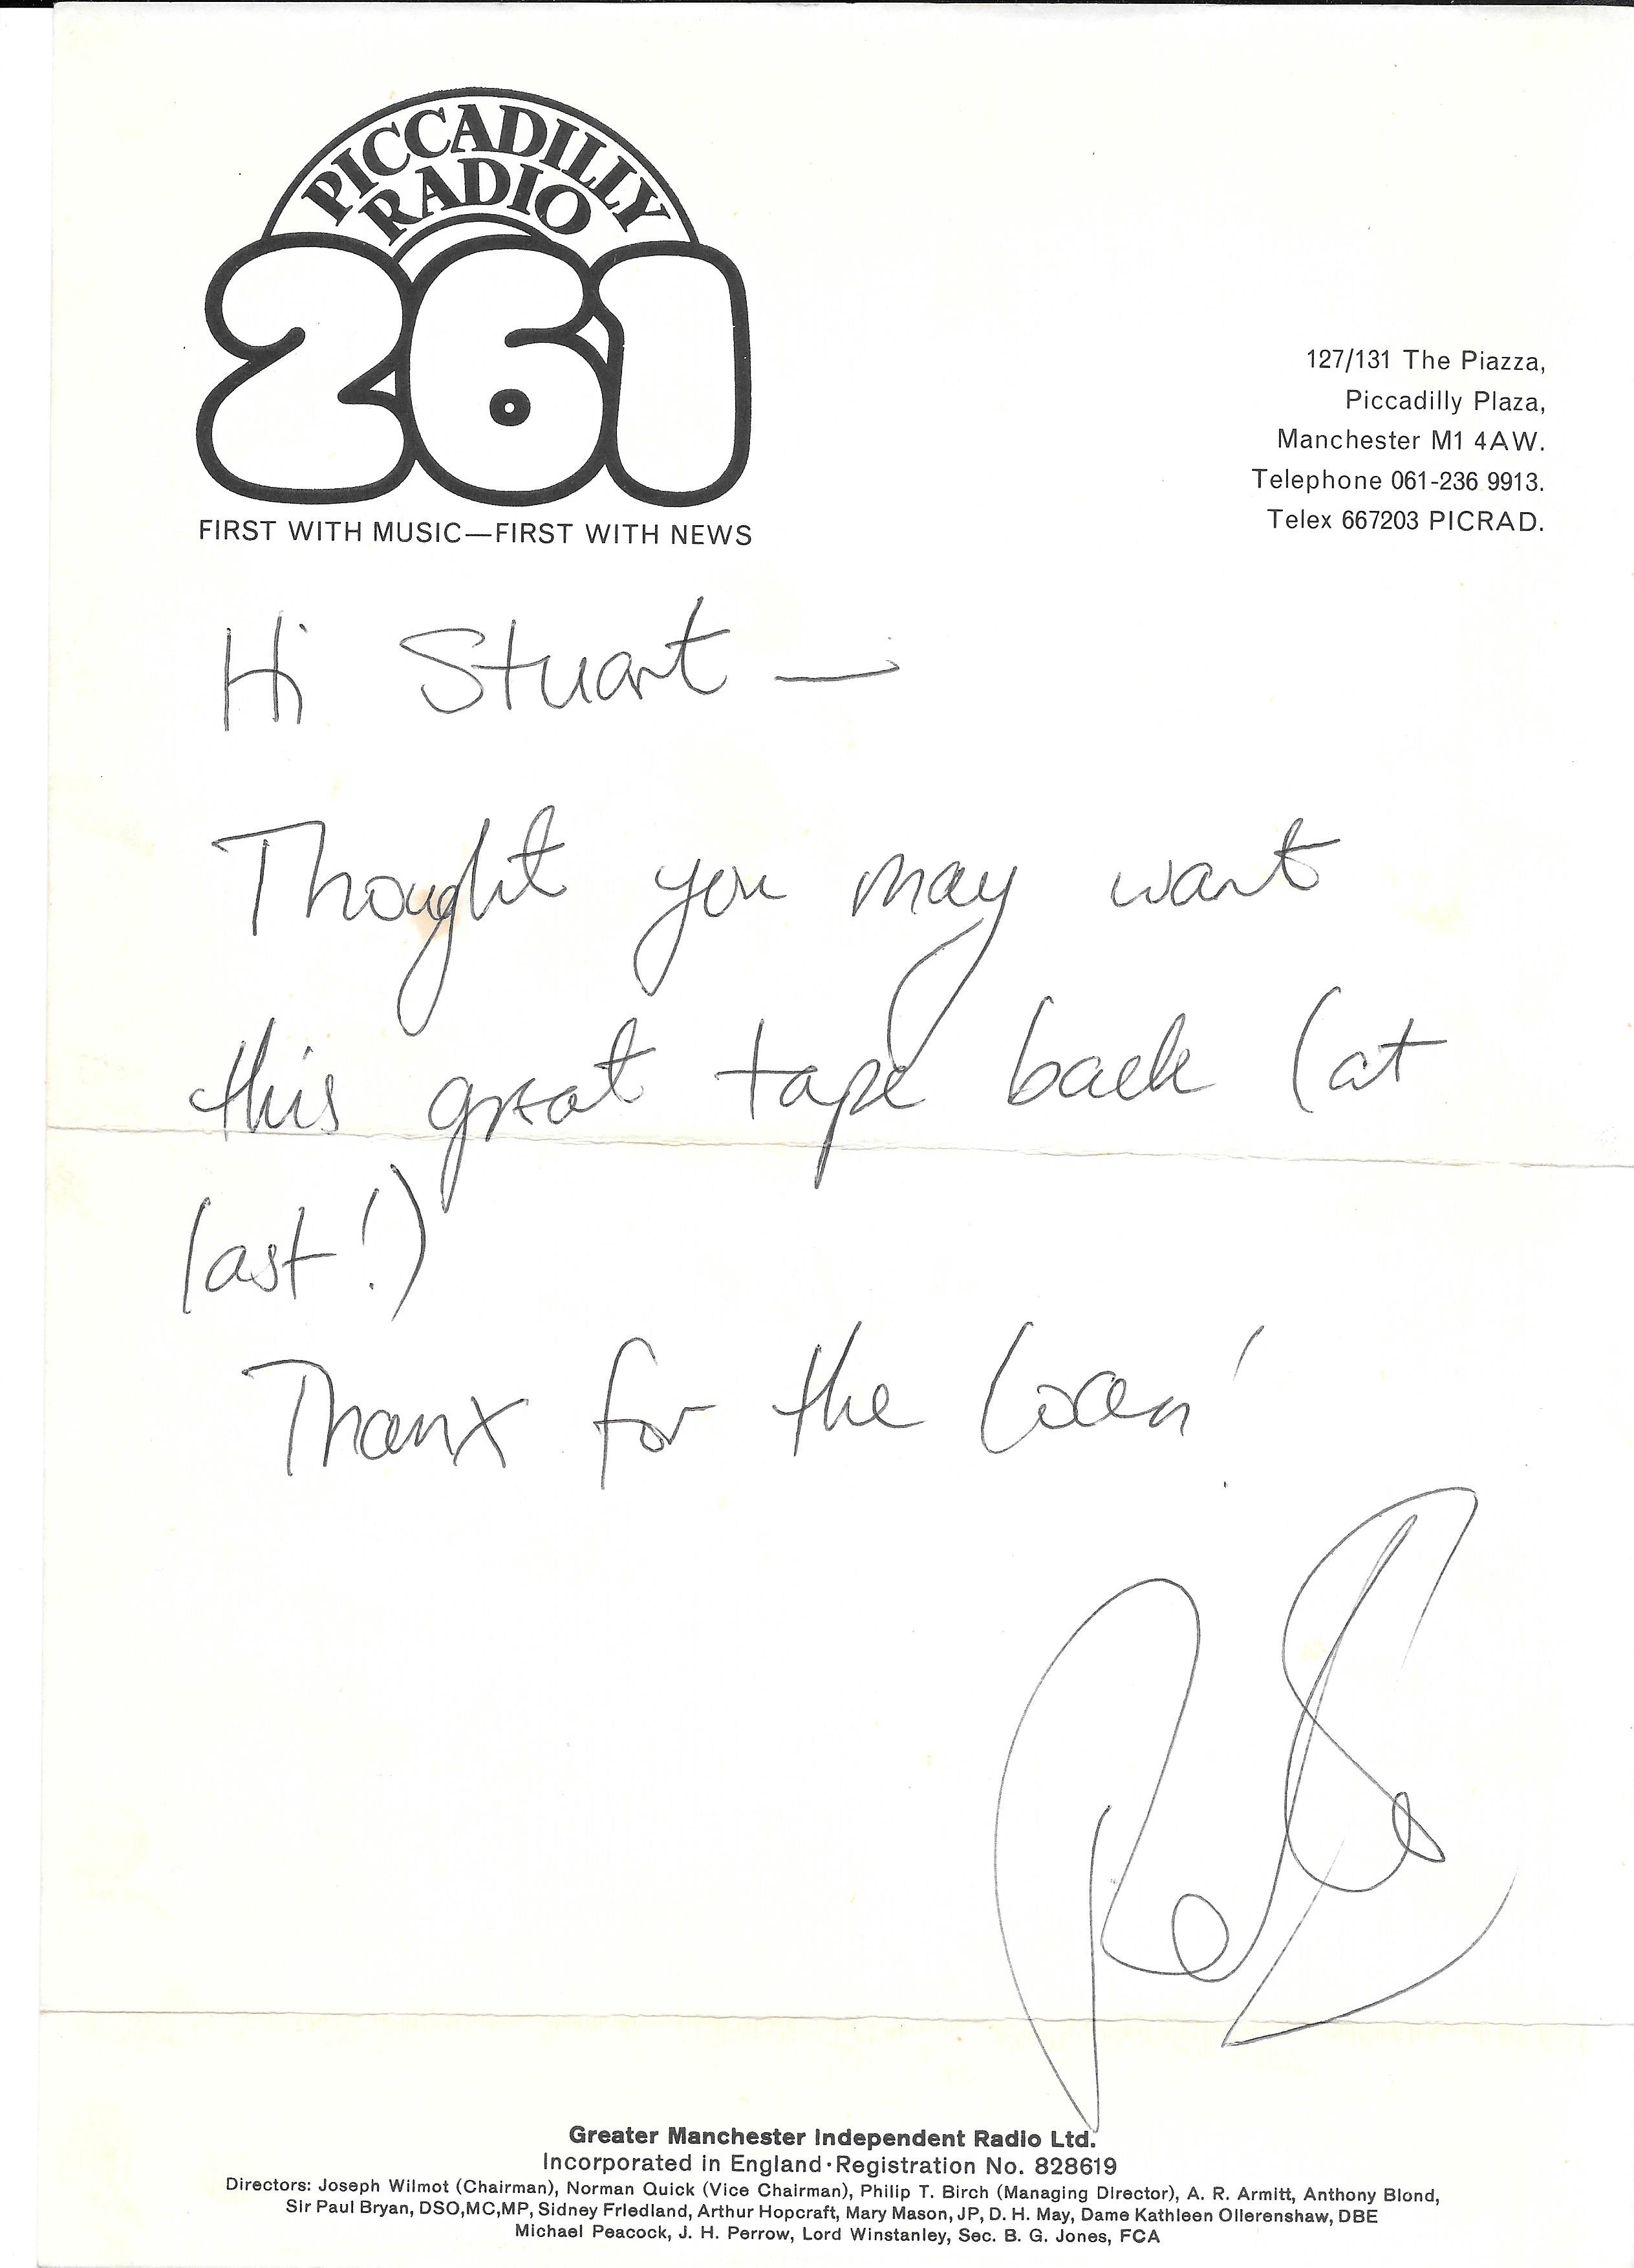 PICCADILLY
RADIO
261
FIRST WITH MUSIC—FIRST WITH NEWS
127/131 The Piazza,
Piccadilly Plaza,
Manchester M1 4AW.
Telephone 061-236 9913.
Telex 667203 PICRAD.
Hi Stuart —
Thought you may want
this great tape back (at
last!)
Thanx for the loan!
Greater Manchester Independent Radio Ltd.
Incorporated in England·Registration No. 828619
Directors: Joseph Wilmot (Chairman), Norman Quick (Vice Chairman), Philip T. Birch (Managing Director), A. R. Armitt, Anthony Blond,
Sir Paul Bryan, DSO,MC,MP, Sidney Friedland, Arthur Hopcraft, Mary Mason, JP, D. H. May, Dame Kathleen Ollerenshaw, DBE
Michael Peacock, J. H. Perrow, Lord Winstanley, Sec. B. G. Jones, FCA